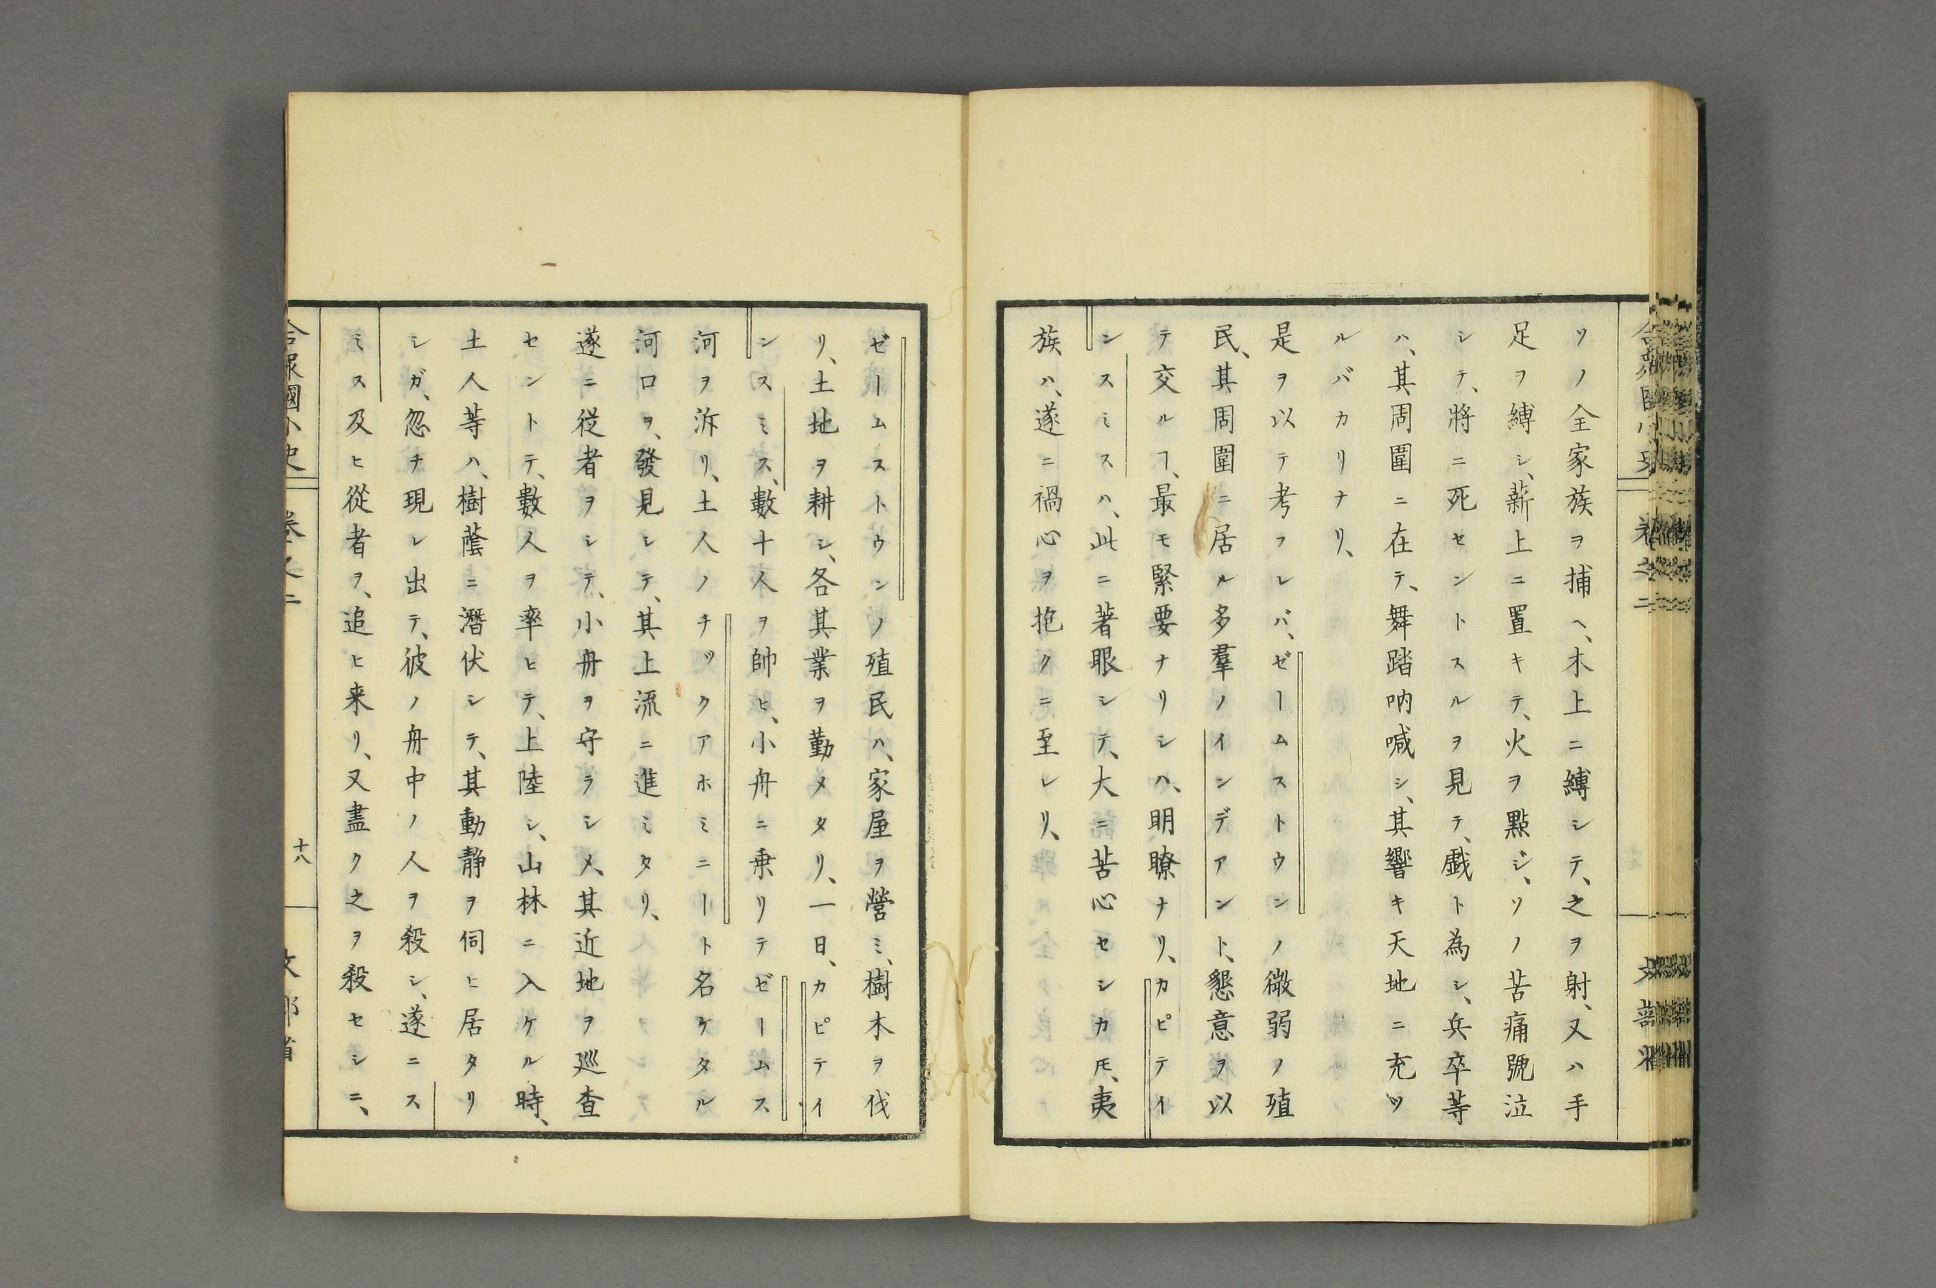 ソノ全家族ヲ捕ヘ、木上ニ縛シテ、之ヲ射、又ハ手
足ヲ縛シ、薪上ニ置キテ、火ヲ點ジ、ソノ苦痛號泣
シテ、將ニ死セントスルヲ見テ、戯ト為シ、兵卒等
ハ、其周圍ニ在テ、舞踏吶喊シ、其響キ天地ニ充ツ
ルバカリナリ、
是ヲ以テ考フレバ、ゼームストウンノ微弱ノ殖
民、其周圍ニ居ル多羣ノインデアント、懇意ヲ以
テ交ルヿ、最モ緊要ナリシハ、明瞭ナリ、カピテイ
ンスミスハ、此ニ著眼シテ、大ニ苦心セシカ𪜈、夷
族ハ、遂ニ禍心ヲ抱クニ至レリ、
ゼームストウンノ殖民ハ、家屋ヲ營ミ、樹木ヲ伐
リ、土地ヲ耕シ、各其業ヲ勤メタリ、一日、カピテイ
ンスミス、數十人ヲ帥ヒ、小舟ニ乗リテゼームス
河ヲ泝リ、土人ノチックアホミニート名ケタル
河口ヲ、發見シテ、其上流ニ進ミタリ、
遂ニ従者ヲシテ、小舟ヲ守ラシメ、其近地ヲ巡査
セントテ、數人ヲ率ヒテ、上陸シ、山林ニ入ケル時、
土人等ハ、樹蔭ニ潛伏シテ、其動静ヲ伺ヒ居タリ
シガ、忽チ現レ出テ、彼ノ舟中ノ人ヲ殺シ、遂ニス
ミス及ヒ從者ヲ、追ヒ来リ、又盡ク之ヲ殺セシニ、
合衆國小史 卷之二 十八 文部省